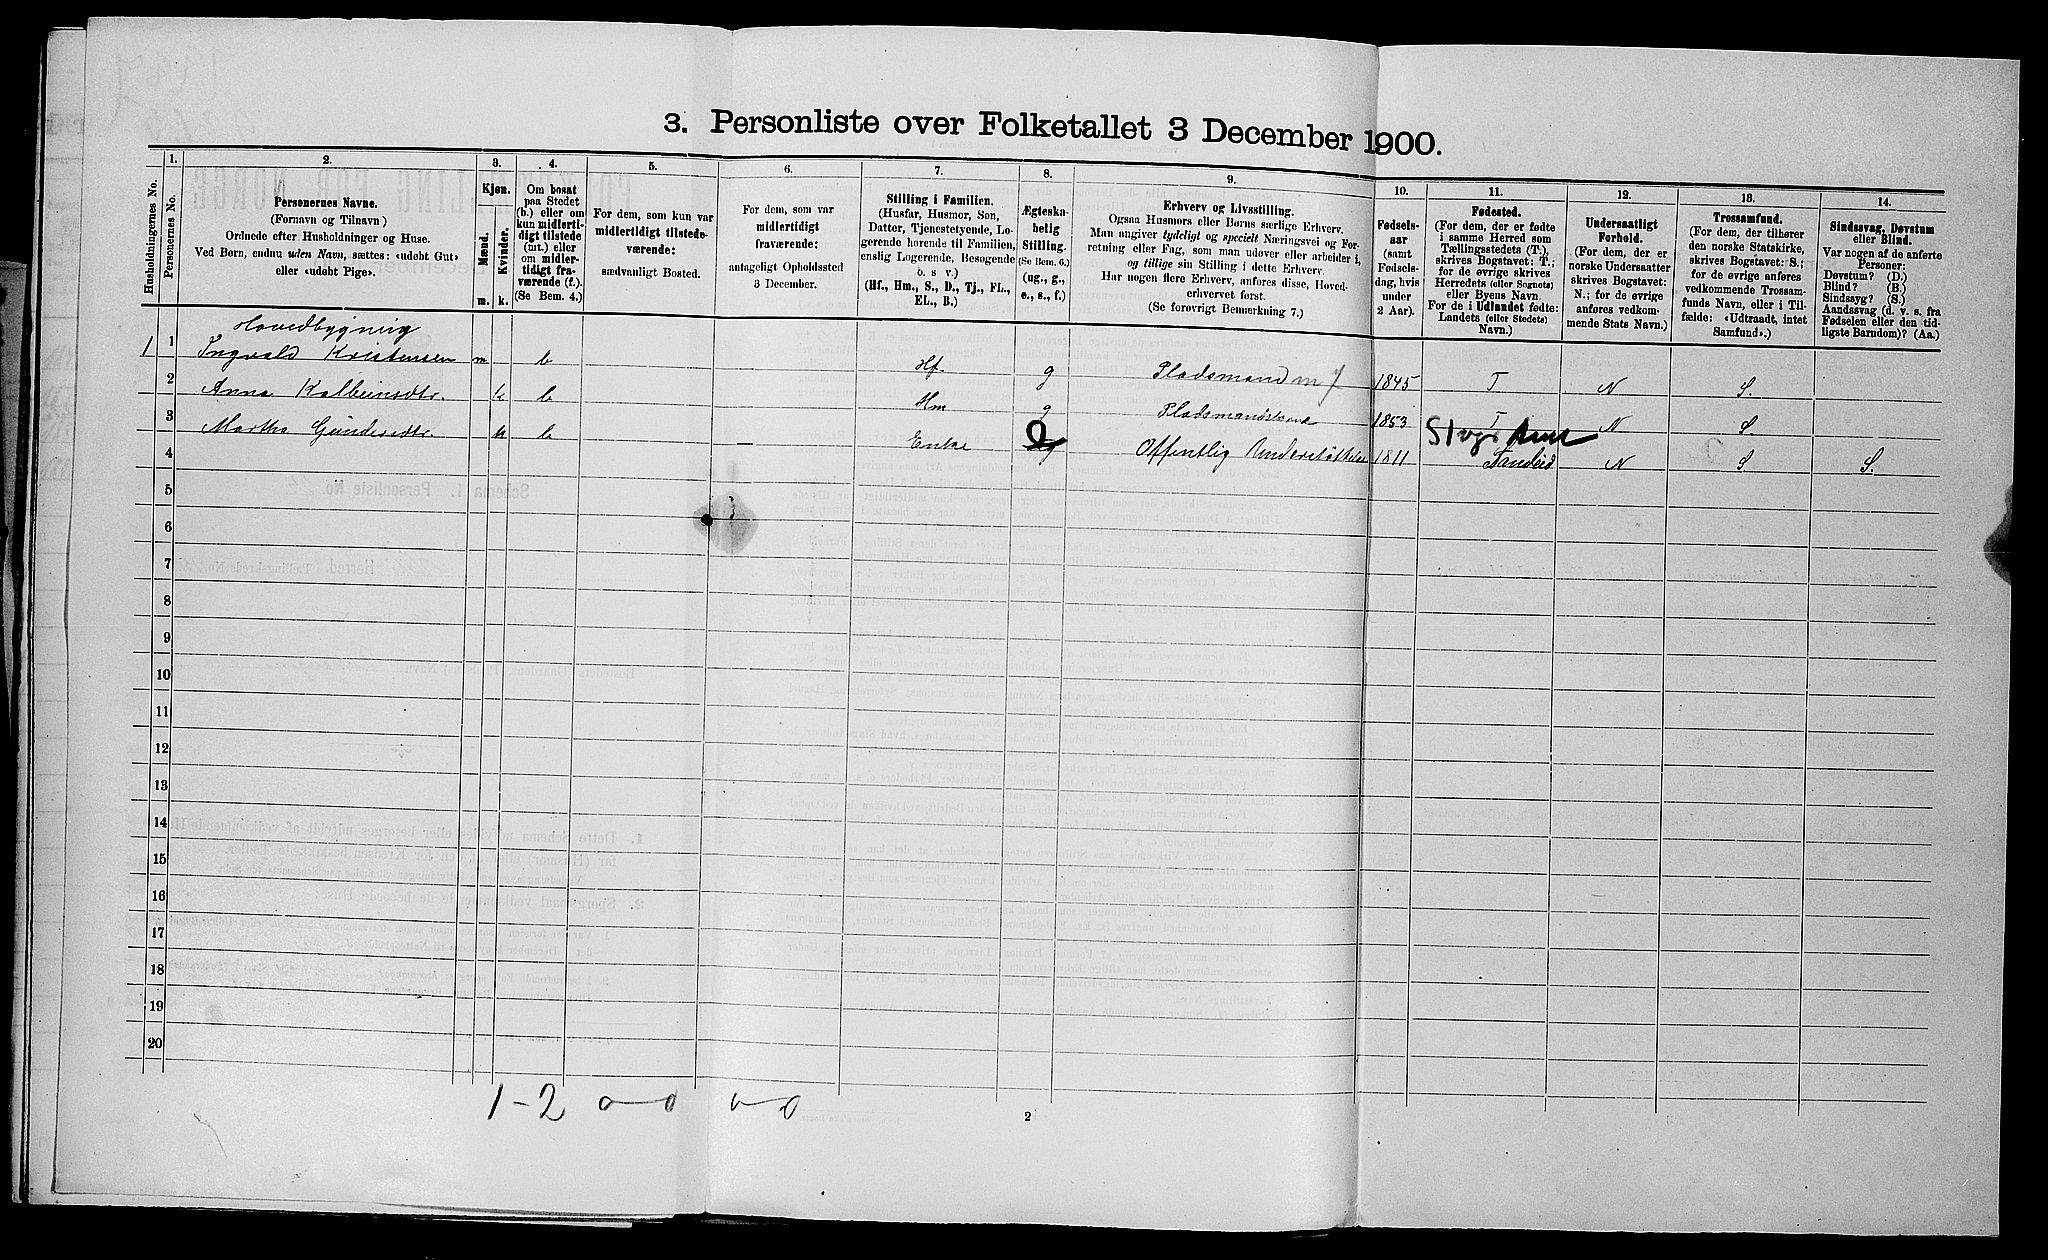 3. Personliste over Folketallet 3 December 1900.
Husholdningernes No.
1.
Personernes No.
2.
Personernes Navne.
(Fornavn og Tilnavn)
Ordnede efter Husholdninger og Huse.
Ved Børn, endnu uden Navn, sættes: «udøbt Gut»
eller «udøbt Pige».
3.
Kjøn.
Mænd.
Kvinder.
m.
k.
4.
Om bosat
paa Stedet
(b.) eller om
kun midlerti-
digt tilstede
(mt.) eller
om midler-
tidigt fra-
værende (f.).
(Se Bem. 4.)
5.
For dem, som kun var
midlertidigt tilstede-
værende:
sædvanligt Bosted.
6.
For dem, som var
midlertidigt
fraværende:
antageligt Opholdssted
3 December.
7.
Stilling i Familien.
(Husfar, Husmor, Søn,
Datter, Tjenestetyende, Lo-
gerende hørende til Familien,
enslig Logerende, Besøgende
o. s. v.)
(Hf., Hm., S., D., Tj., FL.,
EL., B.)
8.
Ægteska-
belig
Stilling.
(Se Bem. 6.)
(ug., g.,
e., s., f.)
9.
Erhverv og Livsstilling.
Ogsaa Husmors eller Børns særlige Erhverv.
Man angiver tydeligt og specielt Næringsvei og For-
retning eller Fag, som man udøver eller arbeider i,
og tillige sin Stilling i dette Erhverv.
Har nogen flere Erhverv, anføres disse, Hoved-
erhvervet først.
(Se forøvrigt Bemærkning 7.)
10.
Fødsels-
aar
(samt
Fødsels-
dag, hvis
under
2 Aar).
11.
Fødested.
(For dem, der er fødte
i samme Herred som
Tællingsstedets (T.),
skrives Bogstavet: T.;
for de øvrige skrives
Herredets (eller Sognets)
eller Byens Navn.
For de i Udlandet fødte:
Landets (eller Stedets)
Navn.)
12.
Undersaatligt
Forhold.
(For dem, der er
norske Undersaatter
skrives Bogstavet:
N.; for de øvrige
anføres vedkom-
mende Stats Navn.)
13.
Trossamfund.
(For dem, der tilhører
den norske Statskirke,
skrives Bogstavet: S.;
for de øvrige anføres
vedkommende Trossam-
funds Navn, eller i Til-
fælde: «Udtraadt, intet
Samfund».)
14.
Sindssvag, Døvstum
eller Blind.
Var nogen af de anførte
Personer:
Døvstum? (D.)
Blind? (B.)
Sindssyg? (S.)
Aandssvag (d. v. s. fra
Fødselen eller den tid-
ligste Barndom)? (Aa.)
Hovedbygning
1 1 Ingvald Kristensen m b Hf. g Pladsmand m 7 1845 T N S.
2 Anna Kolbeinsdtr. k b Hm g Pladsmandskone 1853 T N S.
3 Martha Gundersdtr. k b Enke Offentlig Understøttelse 1811 Sandeid N S S.
4
5
6
7
8
9
10
11
12
13
14
15
16
17
18
19
20
1-2 0-0 0-0
2